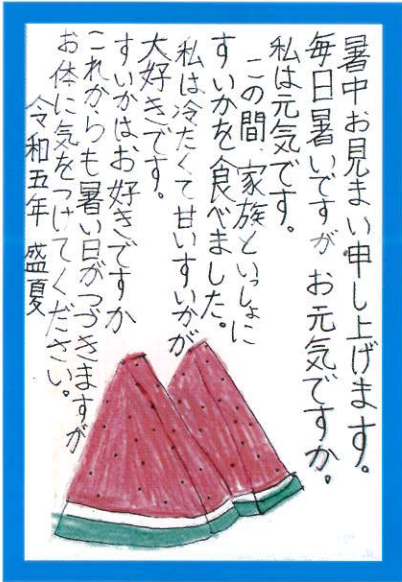 暑中お見まい申し上げます。
毎日暑いですが お元気ですか。
私は元気です。
この間、家族といっしょに
すいかを食べました。
私は冷たくて甘いすいかが
大好きです。
すいかはお好きですか
これからも暑い日がつづきますが
お体に気をつけてください。
令和五年 盛夏